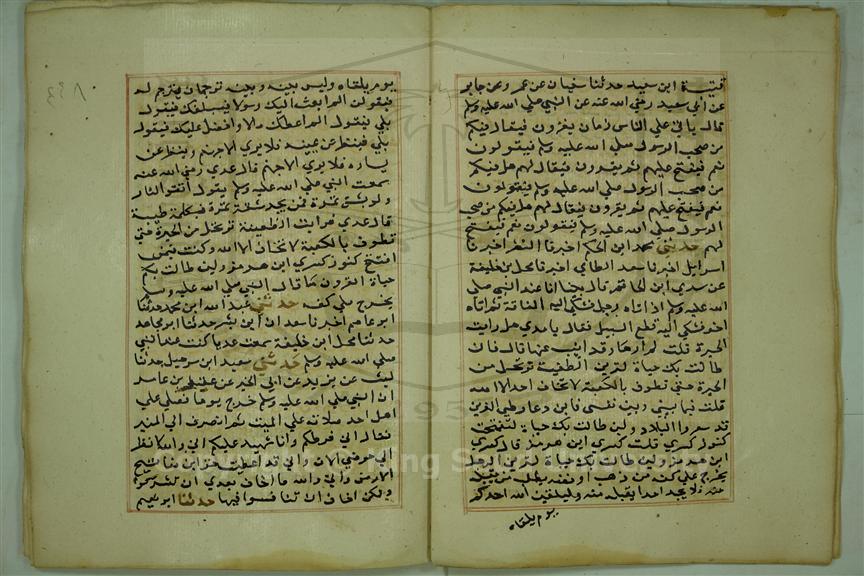 قتيبة ابن سعيد حدثنا سفيان عن عمر وعن جابر
عن أبي سعيد رضي الله عنه عن النبي صلى الله عليه وسلم
قال يأتي على الناس زمان يغزون فيقال فيكم
من صحب الرسول صلى الله عليه وسلم فيقولون
نعم فيفتح عليهم ثم يغزون فيقال لهم هل فيكم
من صحب الرسول صلى الله عليه وسلم فيقولون
نعم فيفتح عليهم ثم يغزون فيقال لهم هل فيكم من صحب
الرسول صلى الله عليه وسلم فيقولون نعم فيفتح
لهم حدثني محمد ابن الحكم اخبرنا النضر اخبرنا
اسرايل اخبرنا سعد الطائي اخبرنا محل بن خليفة
عن عدي ابن الحاتم قال بينا انا عند النبي صلى
الله عليه وسلم اذ اتاه رجل فشكى اليه الفاقة ثم اتاه
اخر فشكى اليه قطع السبيل فقال يا عدي هل رايت
الحيرة قلت لم ارها وقد انبئت عنها قال فان
طالت بك حياة لترين الظعينة ترتحل من
الحيرة حتى تطوف بالكعبة لا تخاف احدا الا الله
قلت فيما بيني وبين نفسي فاين دعار طي الذين
قد سعروا البلاد ولين طالت بك حياة لتفتحن
كنوز كسرى قلت كسرى ابن هرمز قال كسرى
ابن هرمز ولين طالت بك حياة لترين الرجل
يخرج ملي كفه من ذهب او فضة يطلب من يقبله
منه فلا يجد احدا يقبله منه وليلقين الله احدكم
يوم يلقاه
يوم يلقاه وليس بينه وبينه ترجمان يترجم له
فيقولن الم ابعث اليك رسولا فيبلغك فيقول
بلى فيقول الم اعطك مالا وافضل عليك فيقول
بلى فينظر عن يمينه فلا يرى الا جهنم وينظر عن
يساره فلا يرى الا جهنم قال عدي رضي الله عنه
سمعت النبي صلى الله عليه وسلم يقول اتقوا النار
ولو بشق تمرة فمن لم يجد شقة تمرة فبكلمة طيبة
قال عدي فرايت الظعينة ترتحل من الحيرة حتى
تطوف بالكعبة لا تخاف الا الله وكنت فيمن
افتتح كنوز كسرى ابن هرمز ولين طالت بكم
حياة لترون ما قال النبي صلى الله عليه وسلم
يخرج ملي كفه حدثني عبد الله ابن محمد حدثنا
ابو عاصم اخبرنا سعدان ابن بشر حدثنا ابو مجاهد
حدثنا محل ابن خليفة سمعت عديا كنت عند النبي
صلى الله عليه وسلم حدثني سعيد ابن شرحبيل حدثنا
ليث عن يزيد عن ابي الخير عن عقبة بن عامر
ان النبي صلى الله عليه وسلم خرج يوما فصلى على
اهل احد صلاته على الميت ثم انصرف الى المنبر
فقال اني فرطكم وانا شهيد عليكم اني والله لانظر
الى حوضي الان واني قد اعطيت خزاين مفاتيح
الارض واني والله ما اخاف بعدي ان تشركوا
ولكن اخاف ان تنافسوا فيها حدثنا ابو نعيم